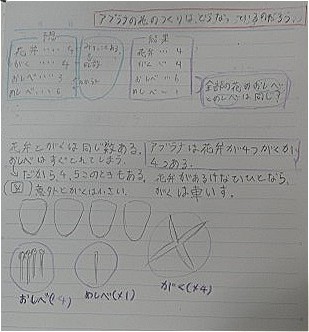 アブラナの花のつくりは、どうなっているのだろう。
花弁・・・・4
がく・・・・4
おしべ・・・・3
めしべ・・・・6
結果
花弁・・・4
がく・・・4
おしべ・・・6
めしべ・・・1
全部の花のおしべ
とめしべは同じ?
花弁とがくは同じ数ある。
おしべはすぐとれてしまう。
だから4,5このときもある。
図
意外とがくは小さい。
アブラナは花弁が4つがくが
4つある。
がくは重い。
おしべ(×4)
めしべ(×1)
がく(×4)